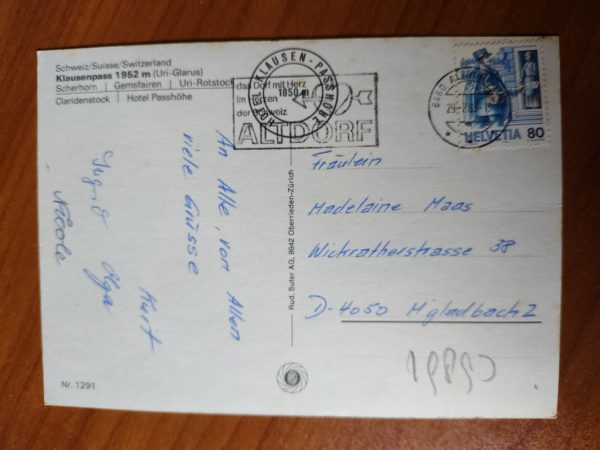 Schweiz/Suisse/Switzerland
Klausenpass 1952 m (Uri-Glarus)
Scherhorn | Gemsfairen | Uri-Rotstock
Claridenstock | Hotel Passhöhe
HOTEL KLAUSEN-PASSHÖHE
1850 m
das Dorf mit Herz
im Herzen
der Schweiz
ALTDORF
6460 ALTDORF
HELVETIA 80
An Alle, von Allen
viele Grüsse
Kurt
Ingrid Olga
Nicole
Rud. Suter AG, 8942 Oberrieden-Zürich
Fräulein
Madelaine Maas
Wickratherstrasse 38
D-4050 M'gladbach 2
Nr. 1291